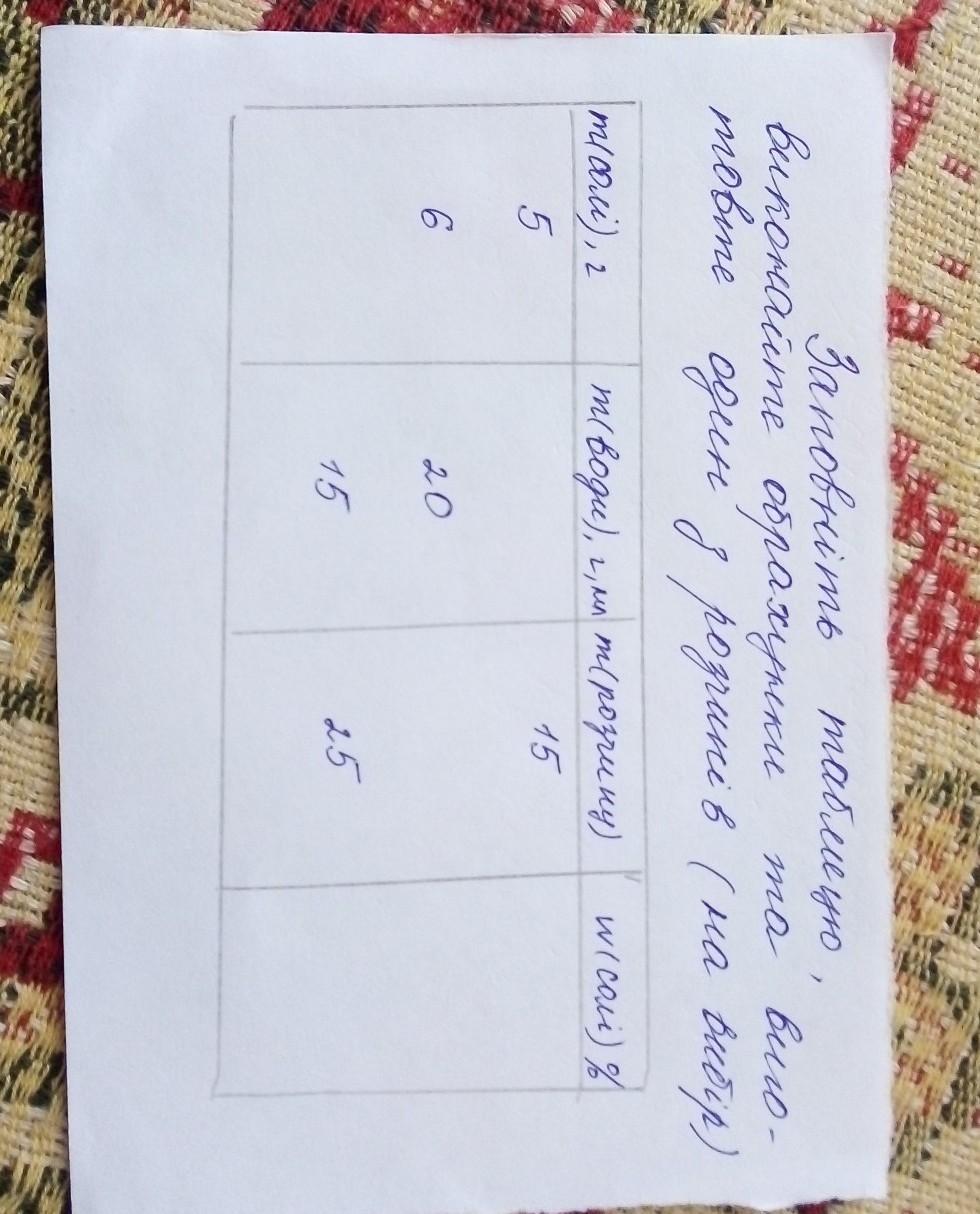 Заповніть таблицю,
виконайте обрахунки та виго-
товте один з розчинів (на вибір)
m(солі), г m(води), г, мл m(розчину) w(солі) %
5 15
6 20
15 25